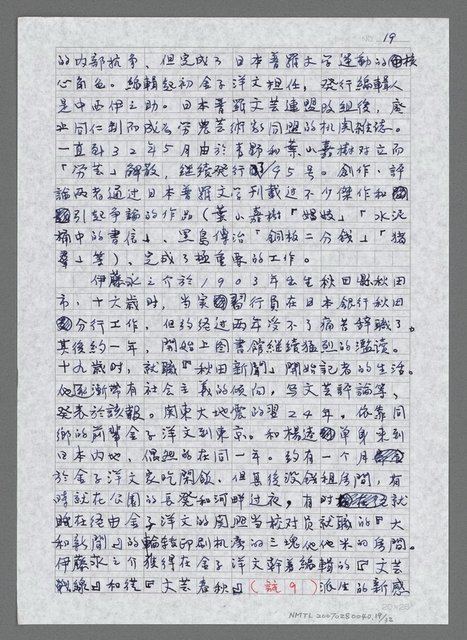 19
的内部抗争、但完成了日本普羅文学運動的核
心角色。編輯起初金子洋文担任，発行編輯人
是中西伊之助。日本普羅文芸連盟改組後，廃
止同仁制而成為労農芸術家同盟的机関雑誌。
一直到32年5月由於青野和葉小嘉樹対立而
「労芸」解散，継続発行95号。創作、評
論両者通过日本普羅文学刊載过不少傑作和
引起争論的作品（葉小嘉樹「娼妓」「水泥
桶中的書信」、黒島傳治「銅板二分銭」「猪
羣」等）、完成了極重要的工作。
伊藤永之介於1903年出生秋田県秋田
市，十六歳时，当実習行員在日本銀行秋田
分行工作，但約経过両年受不了痛苦辞職了。
其後約一年，開始上図書館継続猛烈的濫読。
十九歳时，就職『秋田新聞』開始記者的生活。
他逐漸帯有社会主義的傾向，写文芸評論等，
発表於該報。関東大地震的翌24年，依靠同
郷的前輩金子洋文到東京。和楊逵単身来到
日本内地，偶然的在同一年。約有一个月
於金子洋文家吃閒飯，但其後没銭租房間，有
時就在公園的長凳和河畔过夜，有时就
在経由金子洋文的関照当校対員就職的『大
和新聞』的輪転印刷机旁的三塊他他米的房間。
伊藤永之介獲得在金子洋文幹着編輯的『文芸
戦線』和従『文芸春秋』（註9）派生的新感
20×25
NMTL 20070280040 19/32